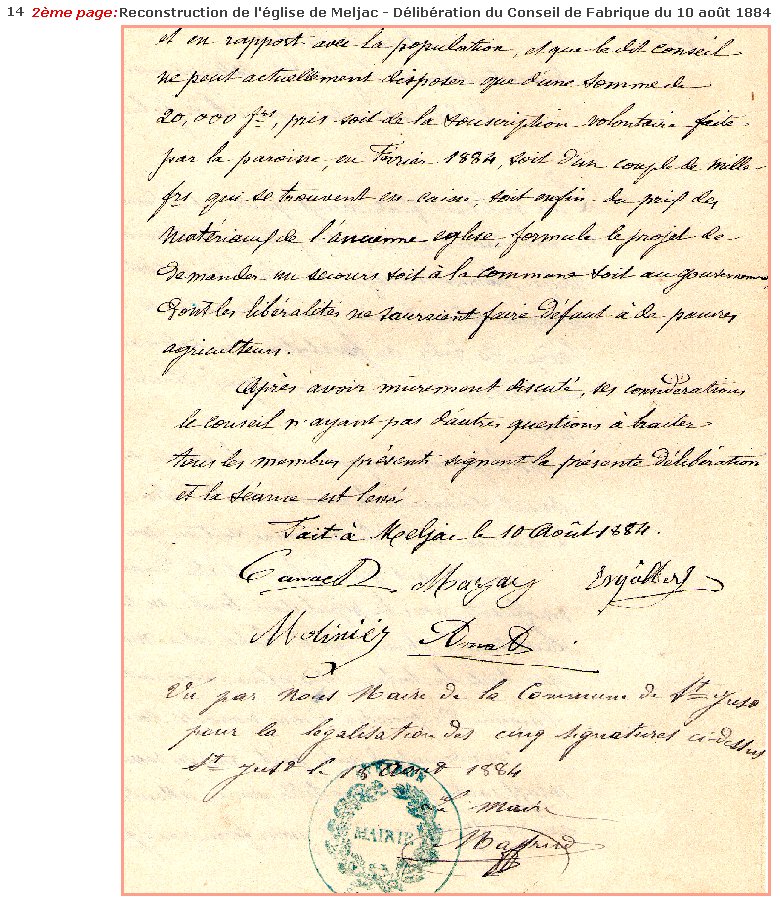 14 2ème page: Reconstruction de l'église de Meljac - Délibération du Conseil de Fabrique du 10 août 1884
et en rapport avec la population, et que le dit conseil
ne peut actuellement disposer que d'une somme de
20,000 frs, pris soit de la souscription volontaire faite
par la paroisse, en Février 1884, soit d'un couple de mille
frs qui se trouvent en caisse, soit enfin du prix des
matériaux de l'ancienne eglise, formule le projet de
demander un secours soit à la commune soit au gouvernement,
dont les libéralités ne sauraient faire défaut à de pauvres
agriculteurs.
Après avoir mûrement discuté, ses considérations
le conseil n'ayant pas d'autres questions à traiter
tous les membres présents signent la présente délibération
et la séance est levée
Fait à Meljac le 10 Août 1884.
Molinier
Vu par nous Maire de la Commune de St Just
pour la legalisation des cinq signatures ci-dessus
St Just le 18 Aout 1884
Le Maire
MAIRIE